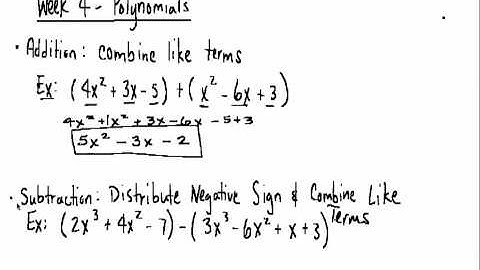 Week 4 - Polynomials
• Addition: combine like terms
Ex: (4x² + 3x - 5) + (x² - 6x + 3)
4x² + 1x² + 3x - 6x - 5 + 3
5x² - 3x - 2
• Subtraction: Distribute Negative Sign & Combine Like Terms
Ex: (2x³ + 4x² - 7) - (3x³ - 6x² + x + 3)